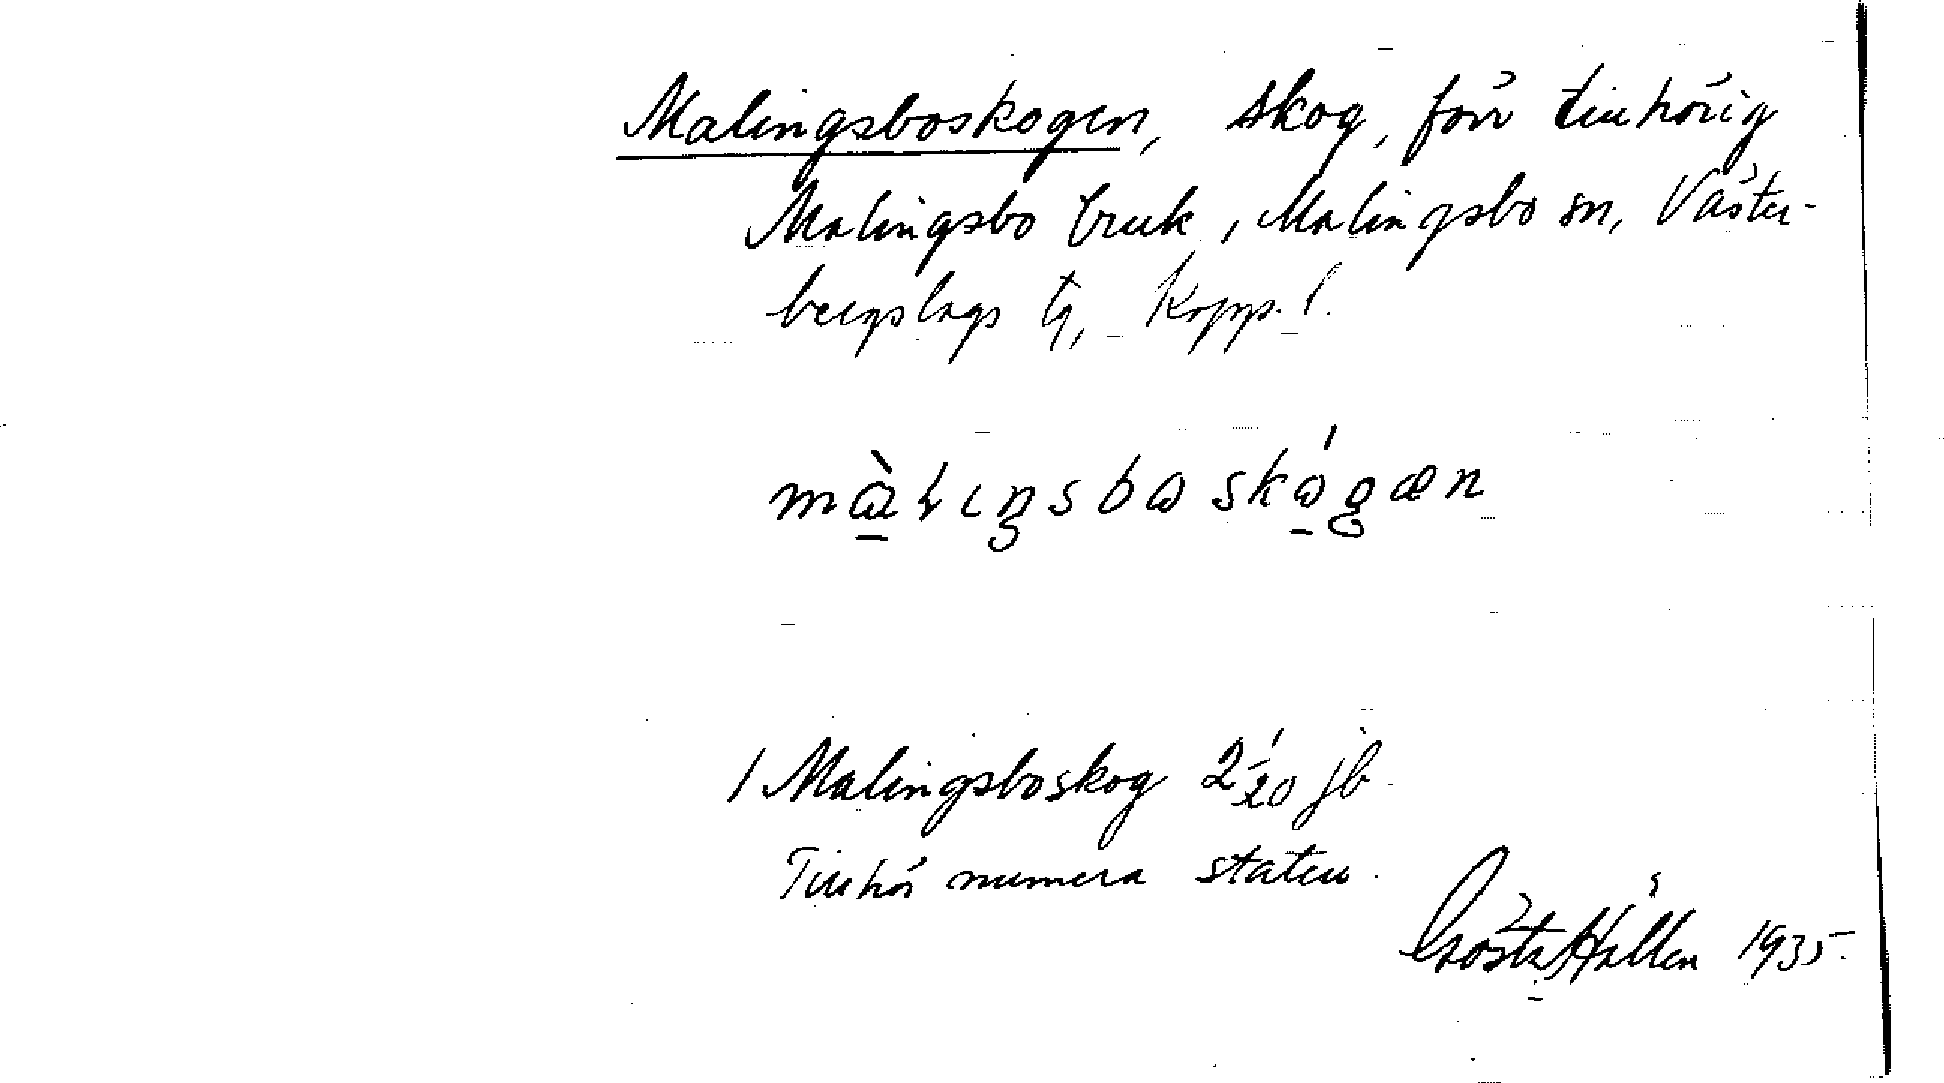 Malingsboskogen, skog, förr tillhörig
Malingsbo bruk, Malingsbo sn, Väster-
bergslags tg, Kopp. l.
mɑ̀lıŋsbωskώgæn
1 Malingsboskog 2 1/20 jb
Tillhör numera staten.
Gösta Hällen 1935.